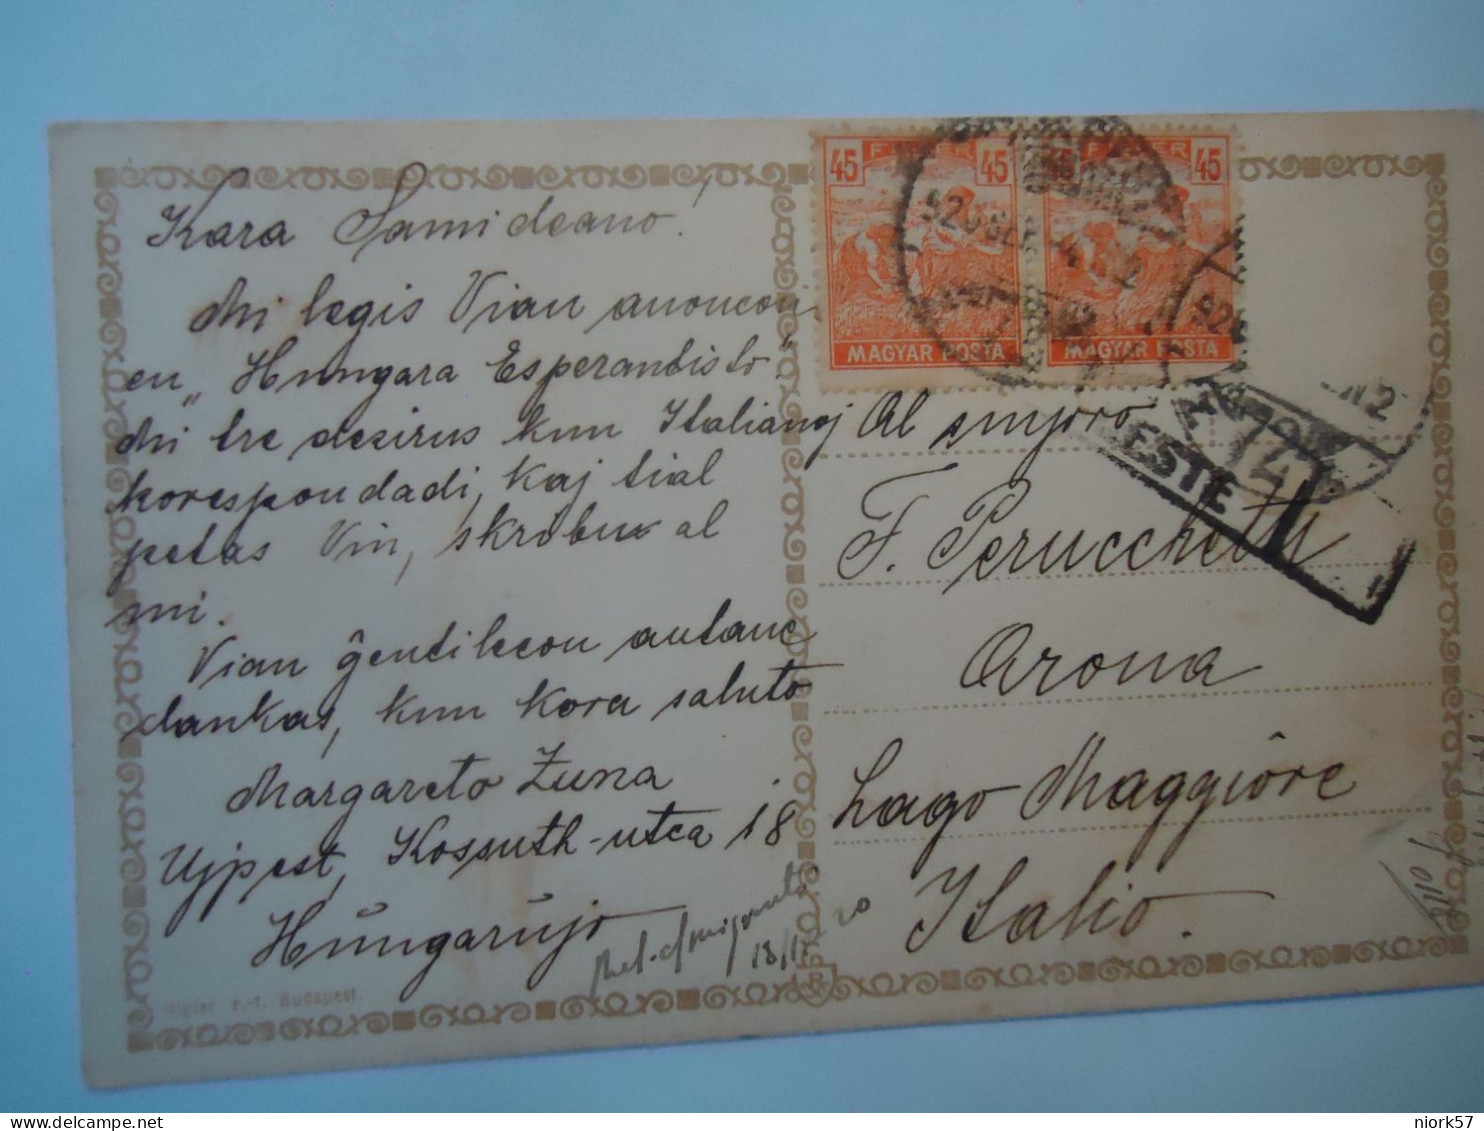 Kara Samideano!
Mi legis Vian anoncon
en „Hungara Esperantisto"
Mi tre desirus kun Italianoj
korespondadi, kaj tial
petas Vin, skribu al
mi.
Vian ĝentilecon antaŭe
dankas, kun kora saluto
Margareto Zuna
Ujpest, Kossuth-utca 18
Hungarujo
Rigler r.-t. Budapest.
FILLER
45 45
MAGYAR POSTA
FILLER
45
MAGYAR POSTA
920
ESTE
14
Al sinjoro
F. Perucchetti
Arona
Lago Maggiôre
Italio.
18/11 20
niork57